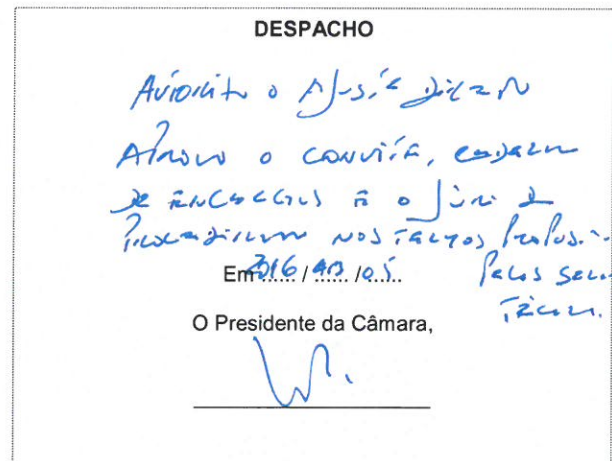 DESPACHO
Autorizo o Ajuste Direto
Aprovo o convite, caderno
de encargos e o Júri do
Procedimento nos termos propostos
pelos serv.
Em 2016 / / 05
Técnicos.
O Presidente da Câmara,